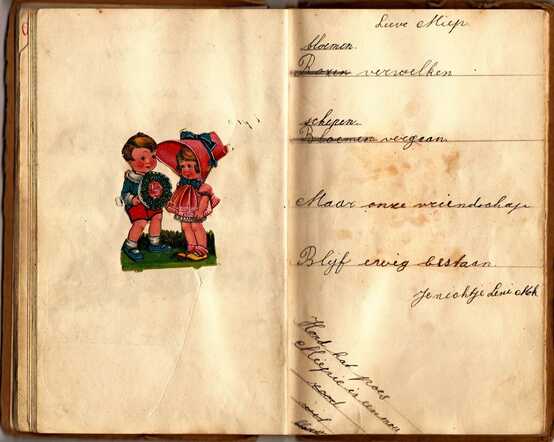 Lieve Miep
bloemen.
Rozen verwelken
schepen.
Bloemen vergaan.
Maar onze vriendschap
Blijf eeuwig bestaan.
Leni
Hond kat poes
Miepie is een